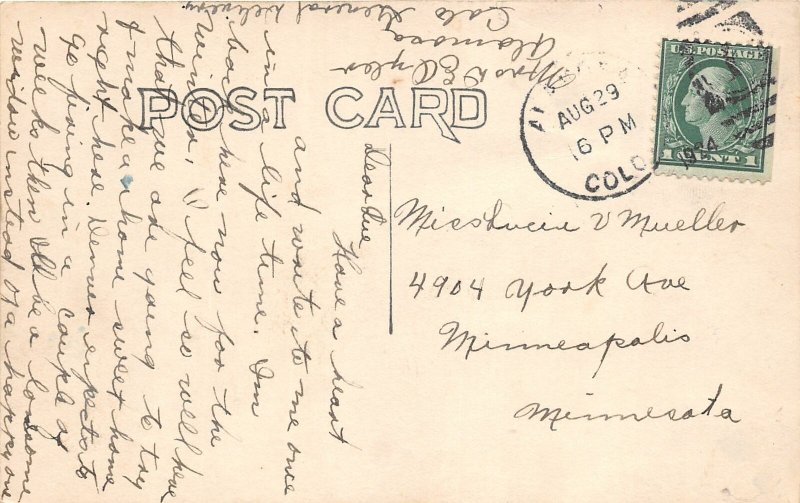 POST CARD
U.S. POSTAGE
1 CENT 1
AUG 29
6 PM
COLO
1924
Miss Lucie V Mueller
4904 York Ave
Minneapolis
Minnesota
Dear Lue
Have a heart
and write to me once
in a life time. Im
back here now for the
winter. I feel so well here
that we are going to try
& make a home sweet home
right here. Denver expects to
go fixing in a couple of
weeks then Ill be a lonsome
widow instead of a happy one
Mrs
Alamosa
Colo General Delivery